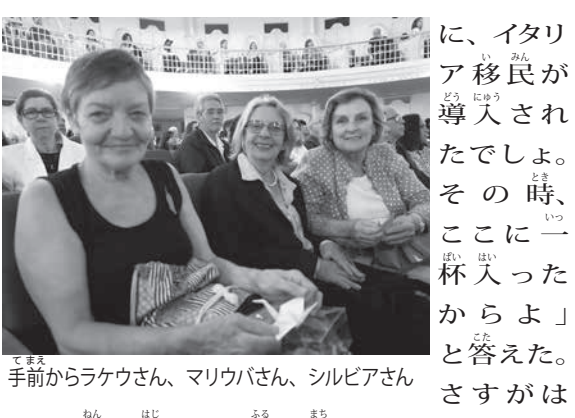 に、イタリ
ア移民が
導入され
たでしょ。
その時、
ここに一
杯入った
からよ」
と答えた。
さすがは
手前からラケウさん、マリウバさん、シルビアさん